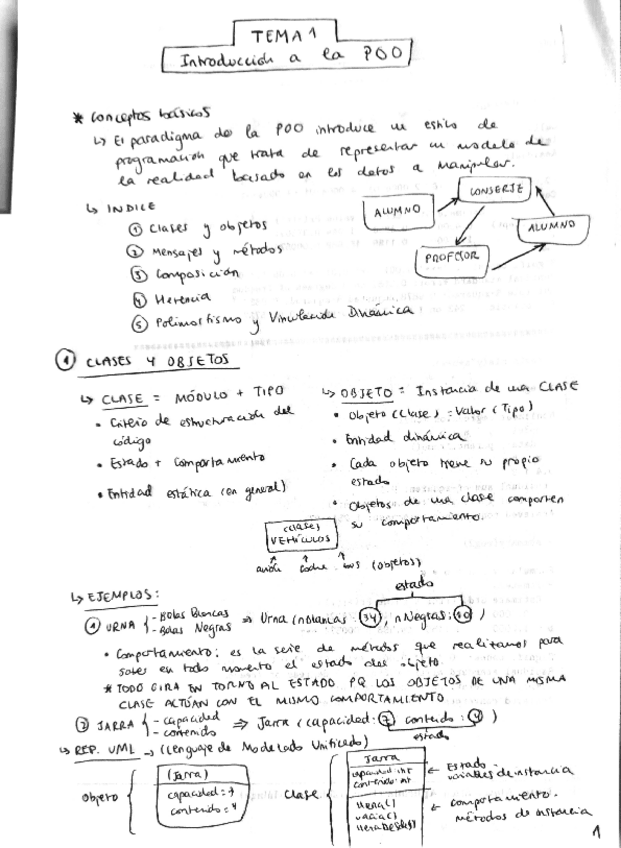 TEMA 1
Introducción a la POO
* Conceptos básicos
↳ El paradigma de la POO introduce un estilo de
programación que trata de representar un modelo de
la realidad basado en los datos a manipular.
↳ INDICE
① Clases y objetos
② Mensajes y métodos
③ Composición
④ Herencia
⑤ Polimorfismo y Vinculación Dinámica
ALUMNO
CONSERJE
ALUMNO
PROFESOR
① CLASES Y OBJETOS
↳ CLASE = MÓDULO + TIPO
• Criterio de estructuración del
código
• Estado + comportamiento
• Entidad estática (en general)
↳ OBJETO = Instancia de una CLASE
• Objeto (Clase) = Valor (Tipo)
• Entidad dinámica
• Cada objeto tiene su propio
estado
• Objetos de una clase comparten
su comportamiento.
(CLASES)
VEHÍCULOS
avión coche bus (objetos)
↳ EJEMPLOS:
estado
① URNA { - Bolas Blancas
- Bolas Negras ⇒ Urna (nBlancas: 34, nNegras: )
• Comportamiento: es la serie de métodos que realizamos para
saber en todo momento el estado del objeto
* TODO GIRA EN TORNO AL ESTADO PQ LOS OBJETOS DE UNA MISMA
CLASE ACTÚAN CON EL MISMO COMPORTAMIENTO
② JARRA { - capacidad
- contenido ⇒ Jarra (capacidad: 7, contenido: 4)
estado
↳ REP. UML → (Lenguaje de Modelado Unificado)
Objeto {
(Jarra)
capacidad = 7
contenido = 4
Clase {
Jarra
capacidad: int
contenido: int
llena()
vacia()
llenaDesde()
← Estado
variables de instancia
← comportamiento.
métodos de instancia
1